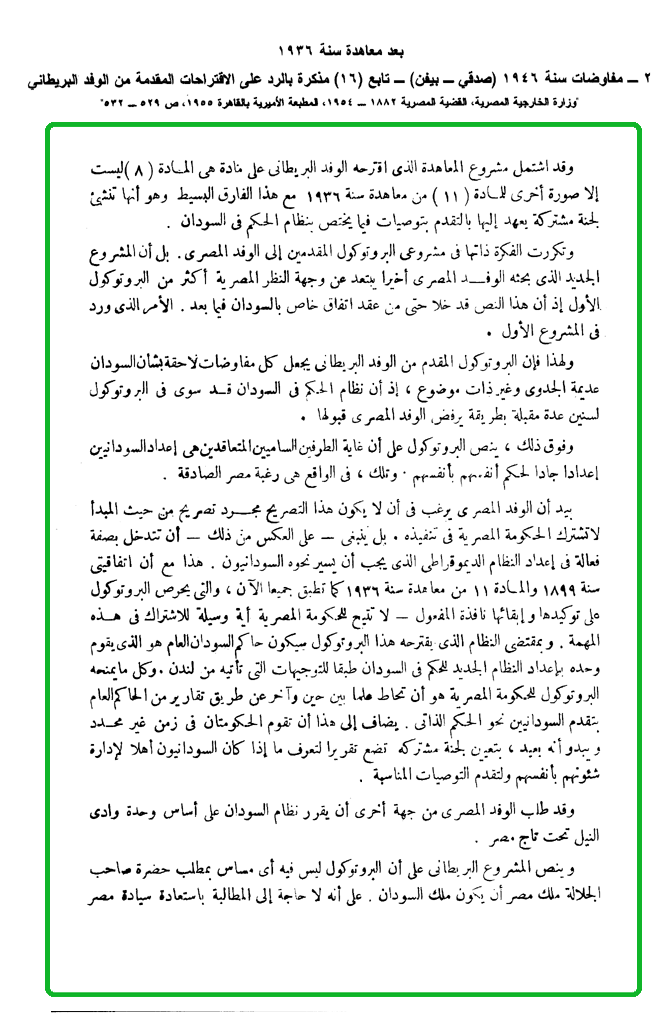 بعد معاهدة سنة ١٩٣٦
٢ ــ مفاوضات سنة ١٩٤٦ (صدقي ــ بيفن) ــ تابع (١٦) مذكرة بالرد على الاقتراحات المقدمة من الوفد البريطاني
"وزارة الخارجية المصرية، القضية المصرية ١٨٨٢ ــ ١٩٥٤، المطبعة الأميرية بالقاهرة ١٩٥٥، ص ٥٢٩ ــ ٥٣٢"
وقد اشتمل مشروع المعاهدة الذى اقترحه الوفد البريطانى على مادة هى المادة ( ٨ ) ليست
إلا صورة أخرى للمادة ( ١١ ) من معاهدة سنة ١٩٣٦ مع هذا الفارق البسيط وهو أنها تنشئ
لجنة مشتركة يعهد إليها بالتقدم بتوصيات فيما يختص بنظام الحكم فى السودان .
وتكررت الفكرة ذاتها فى مشروعى البروتوكول المقدمين إلى الوفد المصرى . بل أن المشروع
الجديد الذى بحثه الوفـــد المصرى أخيرا يبتعد عن وجهة النظر المصرية أكثر من البروتوكول
الأول إذ أن هذا النص قد خلا حتى من عقد اتفاق خاص بالسودان فيما بعد . الأمر الذى ورد
فى المشروع الأول .
ولهذا فإن البروتوكول المقدم من الوفد البريطانى يجعل كل مفاوضات لاحقة بشأن السودان
عديمة الجدوى وغير ذات موضوع ، إذ أن نظام الحكم فى السودان قـــد سوى فى البروتوكول
لسنين عدة مقبلة بطريقة يرفض الوفد المصرى قبولها .
وفوق ذلك ، ينص البروتوكول على أن غاية الطرفين الساميين المتعاقدين هى إعداد السودانيين
إعدادا جادا لحكم أنفسهم بأنفسهم . وتلك ، فى الواقع هى رغبة مصر الصادقة .
بيد أن الوفد المصرى يرغب فى أن لا يكون هذا التصريح مجـــرد تصريح من حيث المبدأ
لا تشترك الحكومة المصرية فى تنفيذه . بل ينبغى — على العكس من ذلك — أن تتدخل بصفة
فعالة فى إعداد النظام الديموقراطى الذى يجب أن يسير نحوه السودانيون . هذا مع أن اتفاقيتى
سنة ١٨٩٩ والمادة ١١ من معاهدة سنة ١٩٣٦ كما تطبق جميعا الآن ، والتى يحرص البروتوكول
على توكيدها وإبقائها نافذة المفعول — لا تتيح للحكومة المصرية أية وسيلة للاشتراك فى هـــذه
المهمة . وبمقتضى النظام الذى يقترحه هذا البروتوكول سيكون حاكم السودان العام هو الذى يقوم
وحده بإعداد النظام الجديد للحكم فى السودان طبقا للتوجيهات التى تأتيه من لندن . وكل ما يمنحه
البروتوكول للحكومة المصرية هو أن تحاط علما بين حين وآخر عن طريق تقارير من الحاكم العام
بتقدم السودانيين نحو الحكم الذاتى . يضاف إلى هذا أن تقوم الحكومتان فى زمن غير محـــدد
ويبدو أنه بعيد ، بتعيين لجنة مشتركه تضع تقريرا لتعرف ما إذا كان السودانيون أهلا لإدارة
شئونهم بأنفسهم ولتقدم التوصيات المناسبة .
وقد طلب الوفد المصرى من جهة أخرى أن يقرر نظام السودان على أساس وحدة وادى
النيل تحت تاج مصر .
وينص المشروع البريطانى على أن البروتوكول ليس فيه أى مساس بمطلب حضرة صاحب
الجلالة ملك مصر أن يكون ملك السودان . على أنه لا حاجة إلى المطالبة باستعادة سيادة مصر